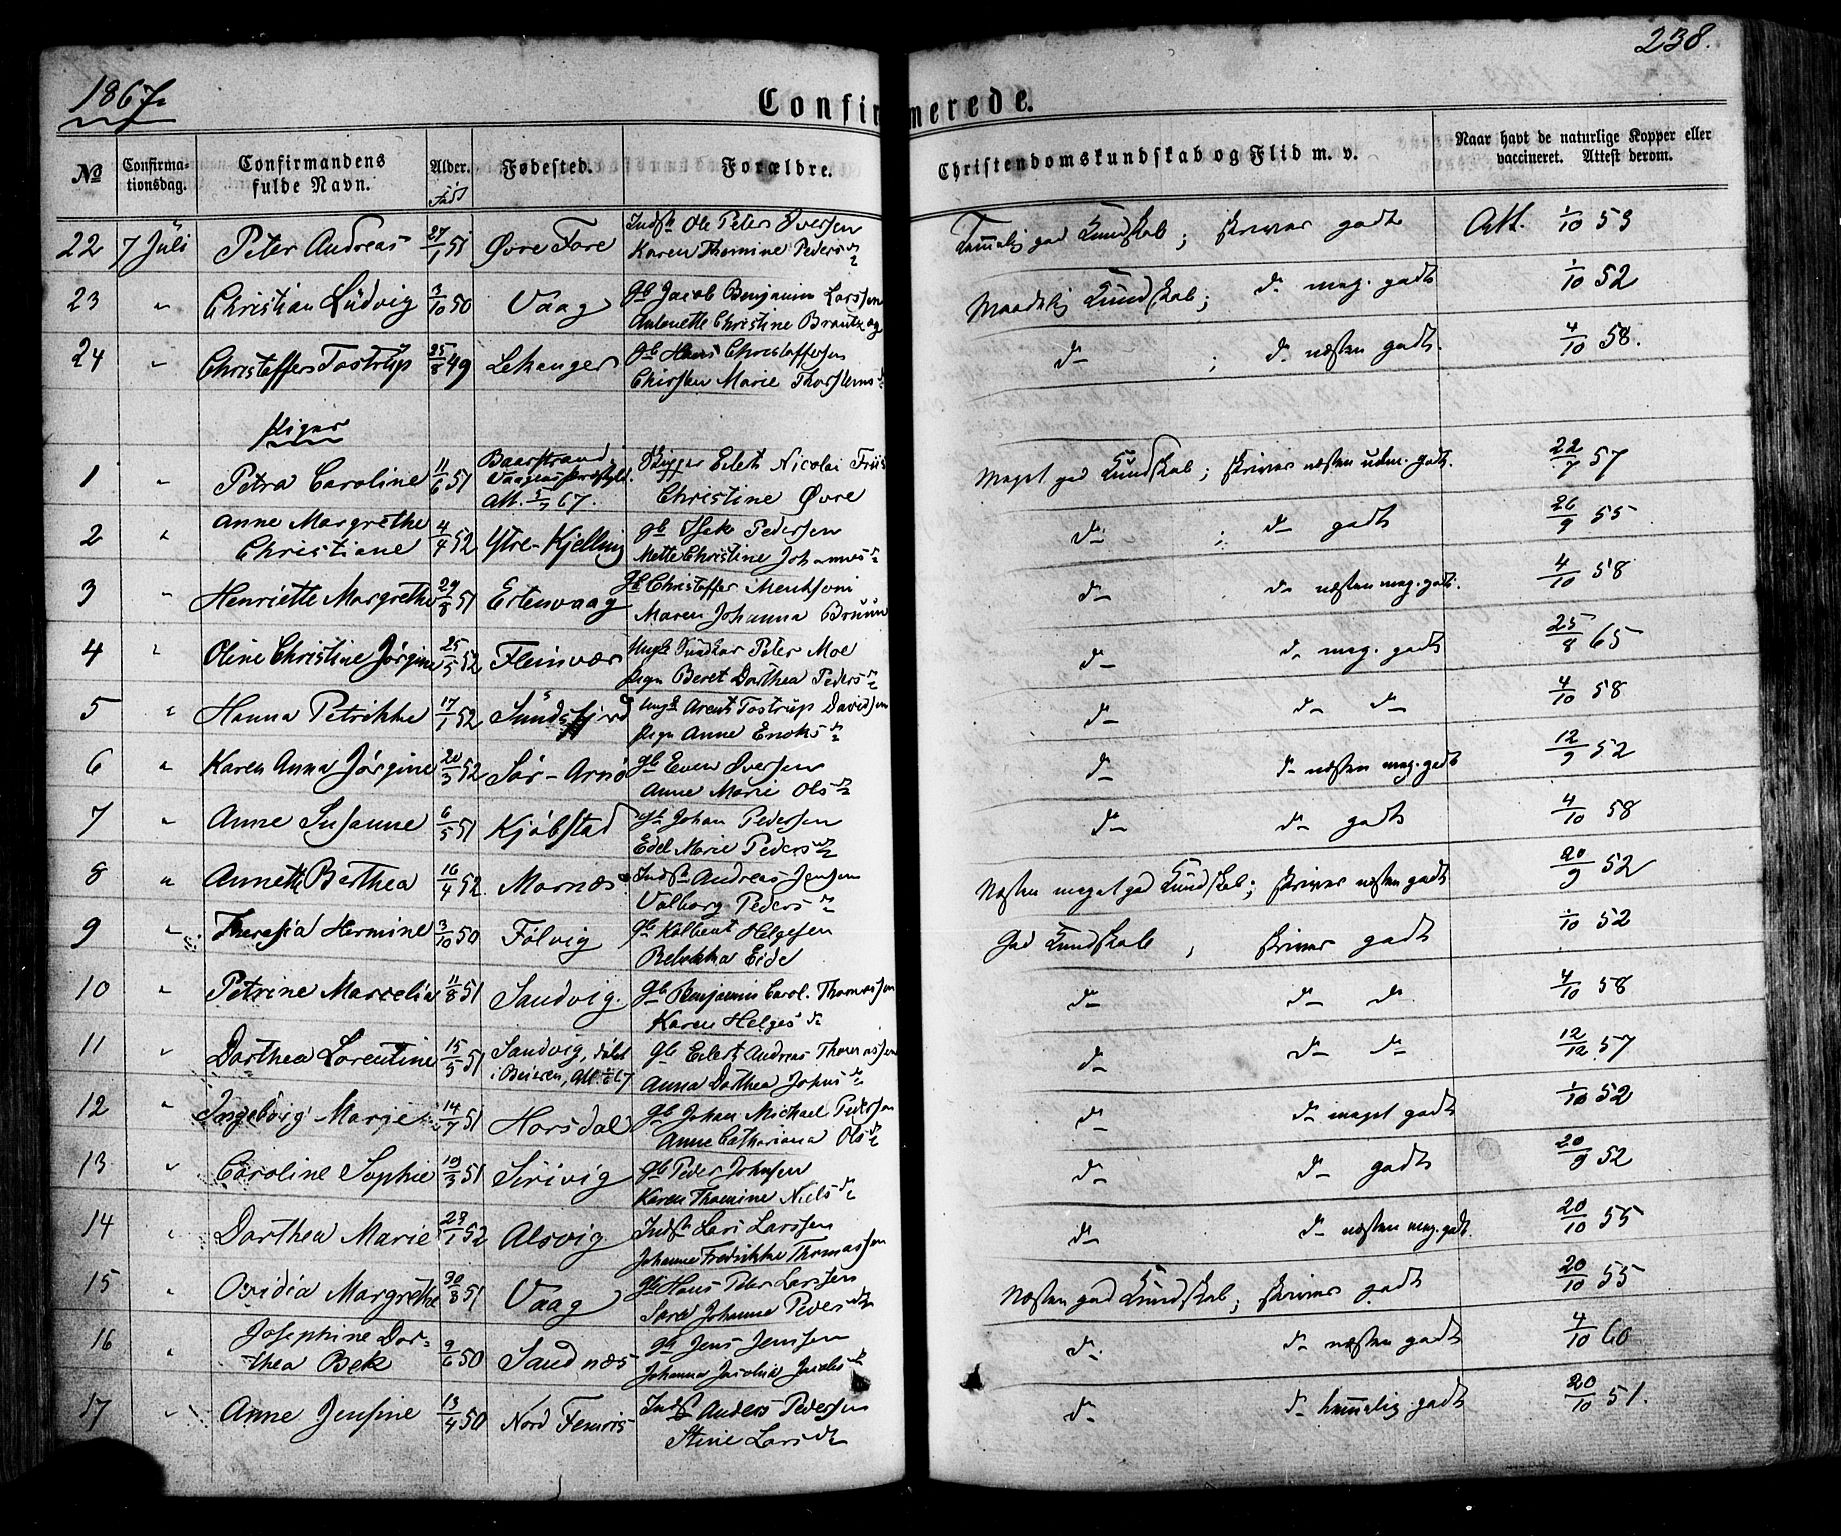 1867.
238.
Confirmerede.
No
Confirmationsdag.
Confirmandens fulde Navn.
Alder.
Født
Fødested.
Forældre.
Christendomskundskab og Flid m. v.
Naar havt de naturlige Kopper eller
vaccineret. Attest derom.
22 7 Juli Peter Andreas 27/1 51 Øvre Fore Indst Ole Peter Iversen
Karen Thomine Pedersd Temmelig god Kundskab; skriver godt Att. 1/10 53
23 " Christian Ludvig 3/10 50 Vaag gb Jacob Benjamin Larssen
Antonette Christine Maadelig Kundskab; do meg. godt 1/10 52
24 " Christoffer Tostrup 25/8 49 Lekanger gb Hans Christoffersen
Marie do ; do næsten godt. 4/10 58.
Piger
1 " Petra Caroline 11/6 51 Baarstrand,
Att. 67. Eilert Nicolai Friis
Christine Øvre Meget god Kundskab; skriver næsten udm. godt. 22/7 57
2 " Anne Margrethe
Christiane 4/4 52 Ytre-Kjelling gb Isak Pedersen
Mette Christine do ; do godt 26/9 55
3 " Henriette Margrethe 29/8 51 Ertenvaag gb Christoffer
Maren Johanna Bruun do do næsten meg. godt. 4/10 58
4 " Oline Christine Jørgine 25/5 52 Fleinvær Ungk Peter Moe
Pige Beret Dorthea Pedersd do do meg. godt 25/8 65
5 " Hanna Petrikke 17/1 52 Sundsfjord Ungk Arent Tostrup Davidsen
Pige Anne Enoksd do do do 4/10 58
6 " Karen Anna Jørgine 20/3 52 Sør-Arnø gb Even Iversen
Anne Marie Olsd do do næsten meg. godt 12/9 52
7 " Anne Susanne 6/5 51 Kjøbstad gb Johan Pedersen
Edel Marie Pedersd do do godt 4/10 58
8 " Annette Berthea 16/4 52 Marnæs Indst Andreas Jensen
Valborg Pedersd Næsten meget god Kundskab; skriver næsten godt 20/9 52
9 " Theresia Hermine 3/10 50 Følvig gb Helgesen
Rebekka Eide God Kundskab, skriver godt 1/10 52
10 " Petrine Marcelia 11/8 51 Sandvig. gb Benjamin Carol. Thomassen
Karen Helgesd do do do 4/10 58
11 " Dorthea Lorentine 15/5 51 Sandvig, født
i Beieren, Att. 67 gb Eilert Andreas Thomassen
Anna Dorthea Johnsd do do do 12/12 57
12 " Ingeborg Marie 14/7 51 Horsdal gb Johan Michael Pedersen
Anne Cathariana Olsd do do meget godt 1/10 52
13 " Caroline Sophie 19/3 51 Sirivig gb Peder Johnsen
Karen Thomine Nielsd do do godt 20/9 52
14 " Dorthea Marie 29/1 52 Alsvig Indst Lars Larssen
Johanne Fredrikke Thomassen do do næsten meg. godt 20/10 55
15 " Ovidia Margrethe 30/8 51 Vaag gb Hans Peter Larssen
Sara Johanna Pedersd Næsten god Kundskab; skriver godt 20/10 55
16 " Josephine Dor-
thea Bek 9/6 50 Sandnæs gb Jens Jenssen
Johanna Jacobsd do. do næsten godt 4/10 60
17 " Anne Jensine 13/4 50 Nord Femris Indst Anders Pedersen
Stine Larsd do do temmelig godt 20/10 51.